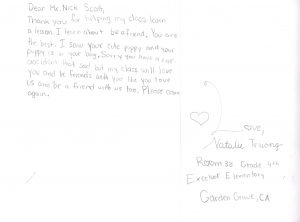 Dear Mr. Nick Scott,
Thank you for helping my class learn
a lesson. I learn about be a friend. You are
the best. I saw your cute puppy and your
puppy is in your bag. Sorry you have a car
accident that sad but my class will love
you and be friends with you like you love
us and be a friend with us too. Please come
again.
Love,
Natalie Truong
Room 38 Grade 4th
Excelset Elementary
Garden Grove, CA